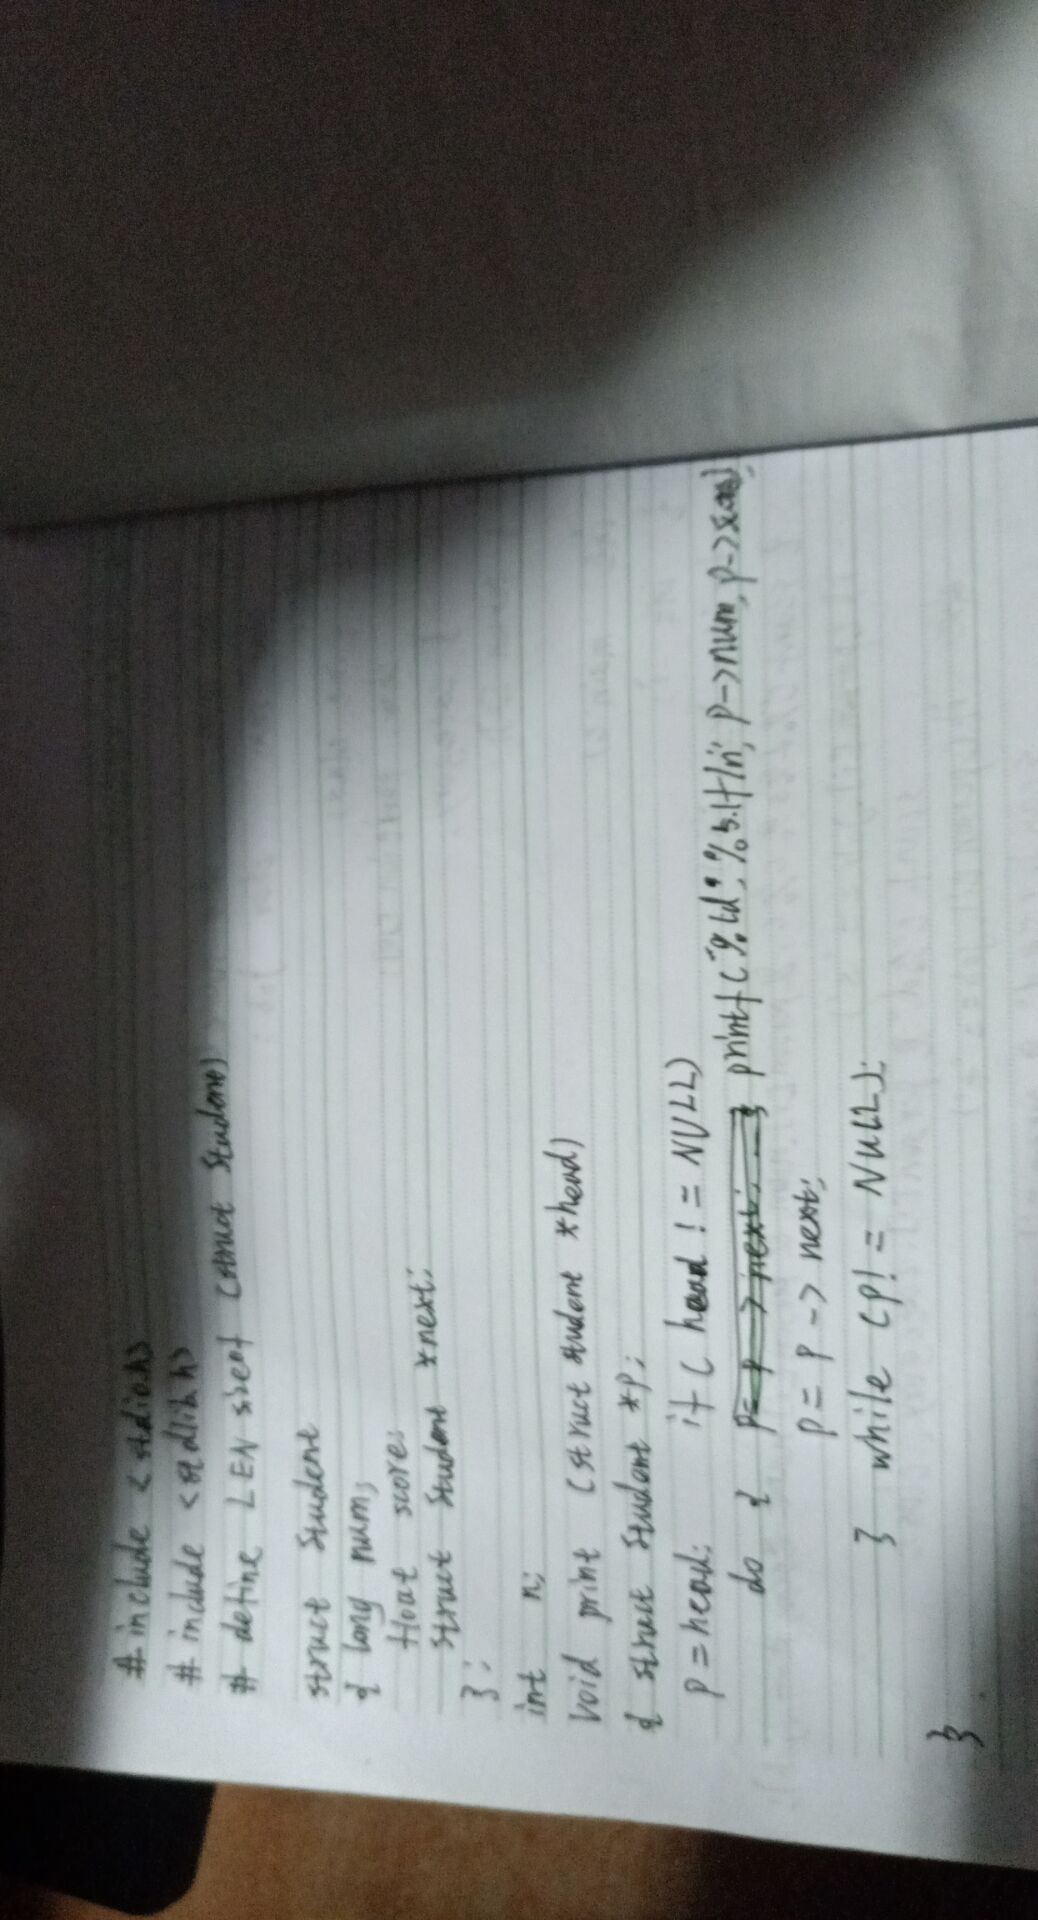 # include < stdio.h>
# include < stdlib.h>
# define LEN sizeof (struct Student)
struct Student
{ long num;
float score;
struct Student *next;
};
int n;
void print (struct student *head)
{ struct Student *p;
p = head; if ( head ! = NULL)
do { printf ("%ld", %5.1f\n", p->num, p->score);
p = p -> next;
} while (p! = NULL);
}